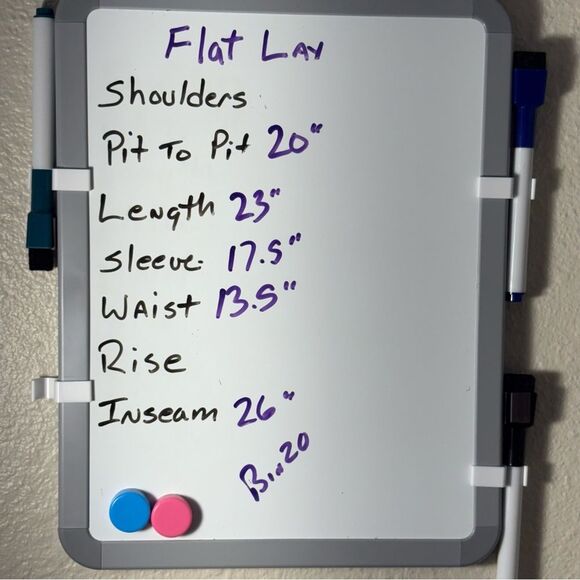 Flat Lay
Shoulders
Pit To Pit 20"
Length 23"
Sleeve- 17.5"
Waist 13.5"
Rise
Inseam 26"
Bin 20